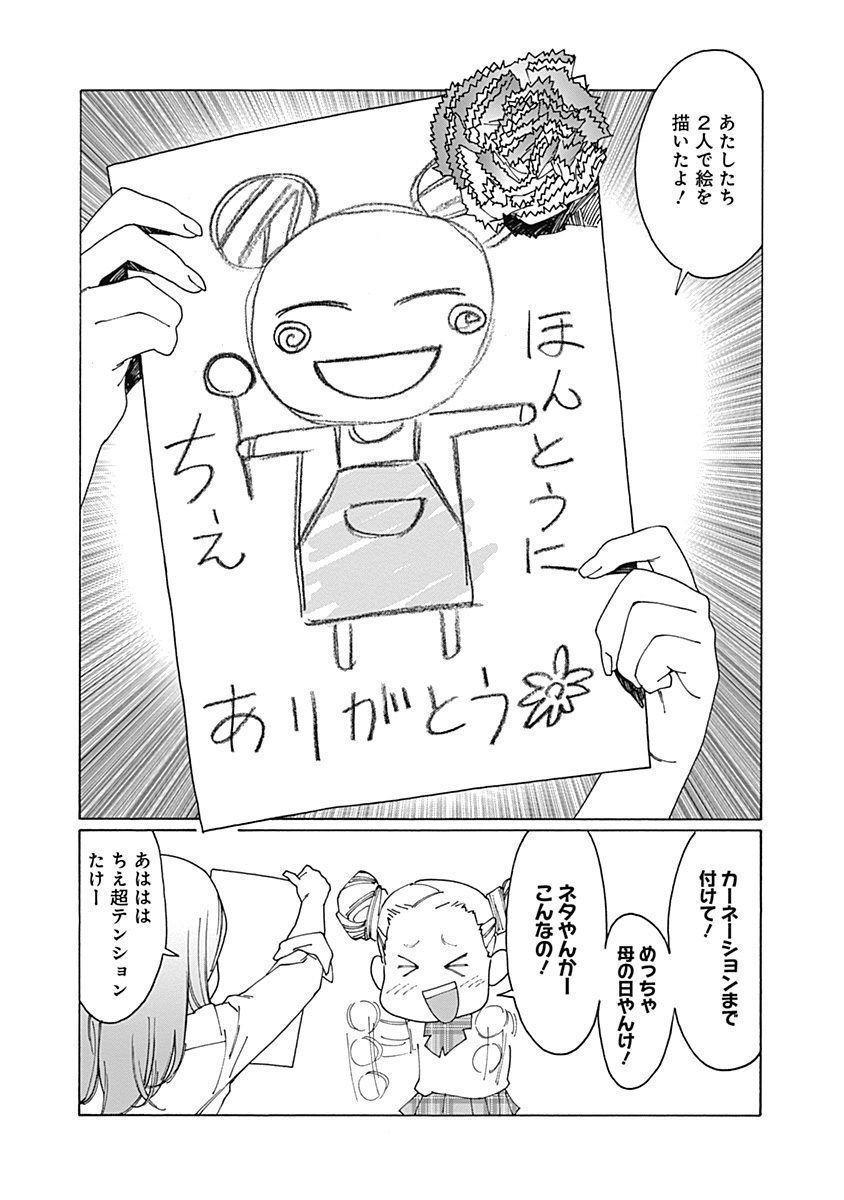 あたしたち
２人で絵を
描いたよ！
ほんとうに
ちえ
ありがとう
カーネーションまで
付けて！
めっちゃ
母の日やんけ！
ネタやんかー
こんなの！
あははは
ちえ超テンション
たけー